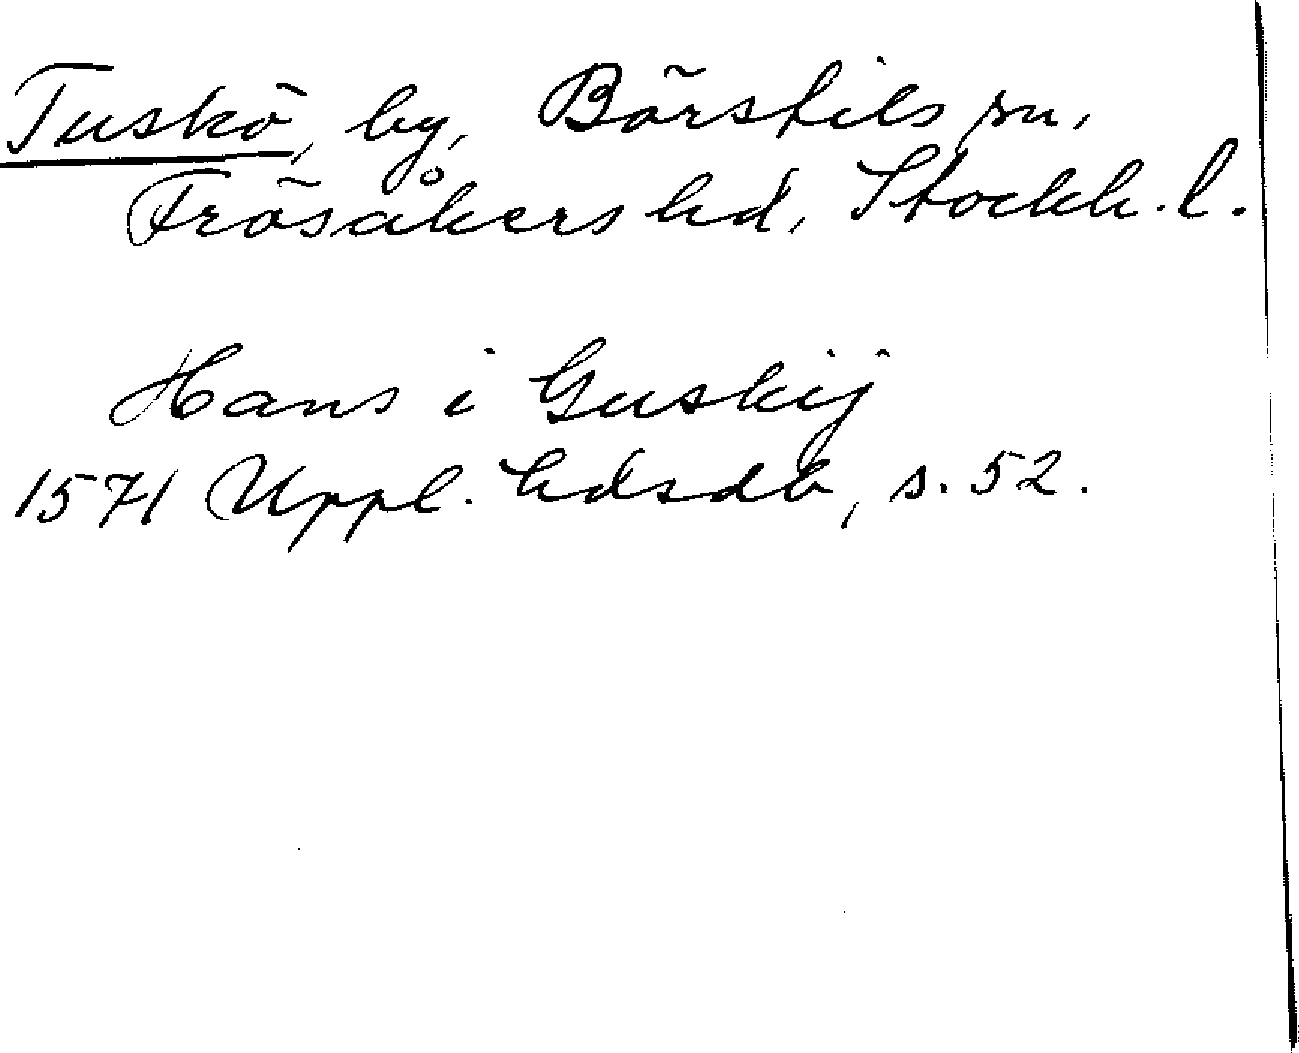 Tuskö, by, Börstils sn,
Frösåkers hd, Stockh. l.
Hans i Guskij
1571 Uppl. hdsdb, s. 52.